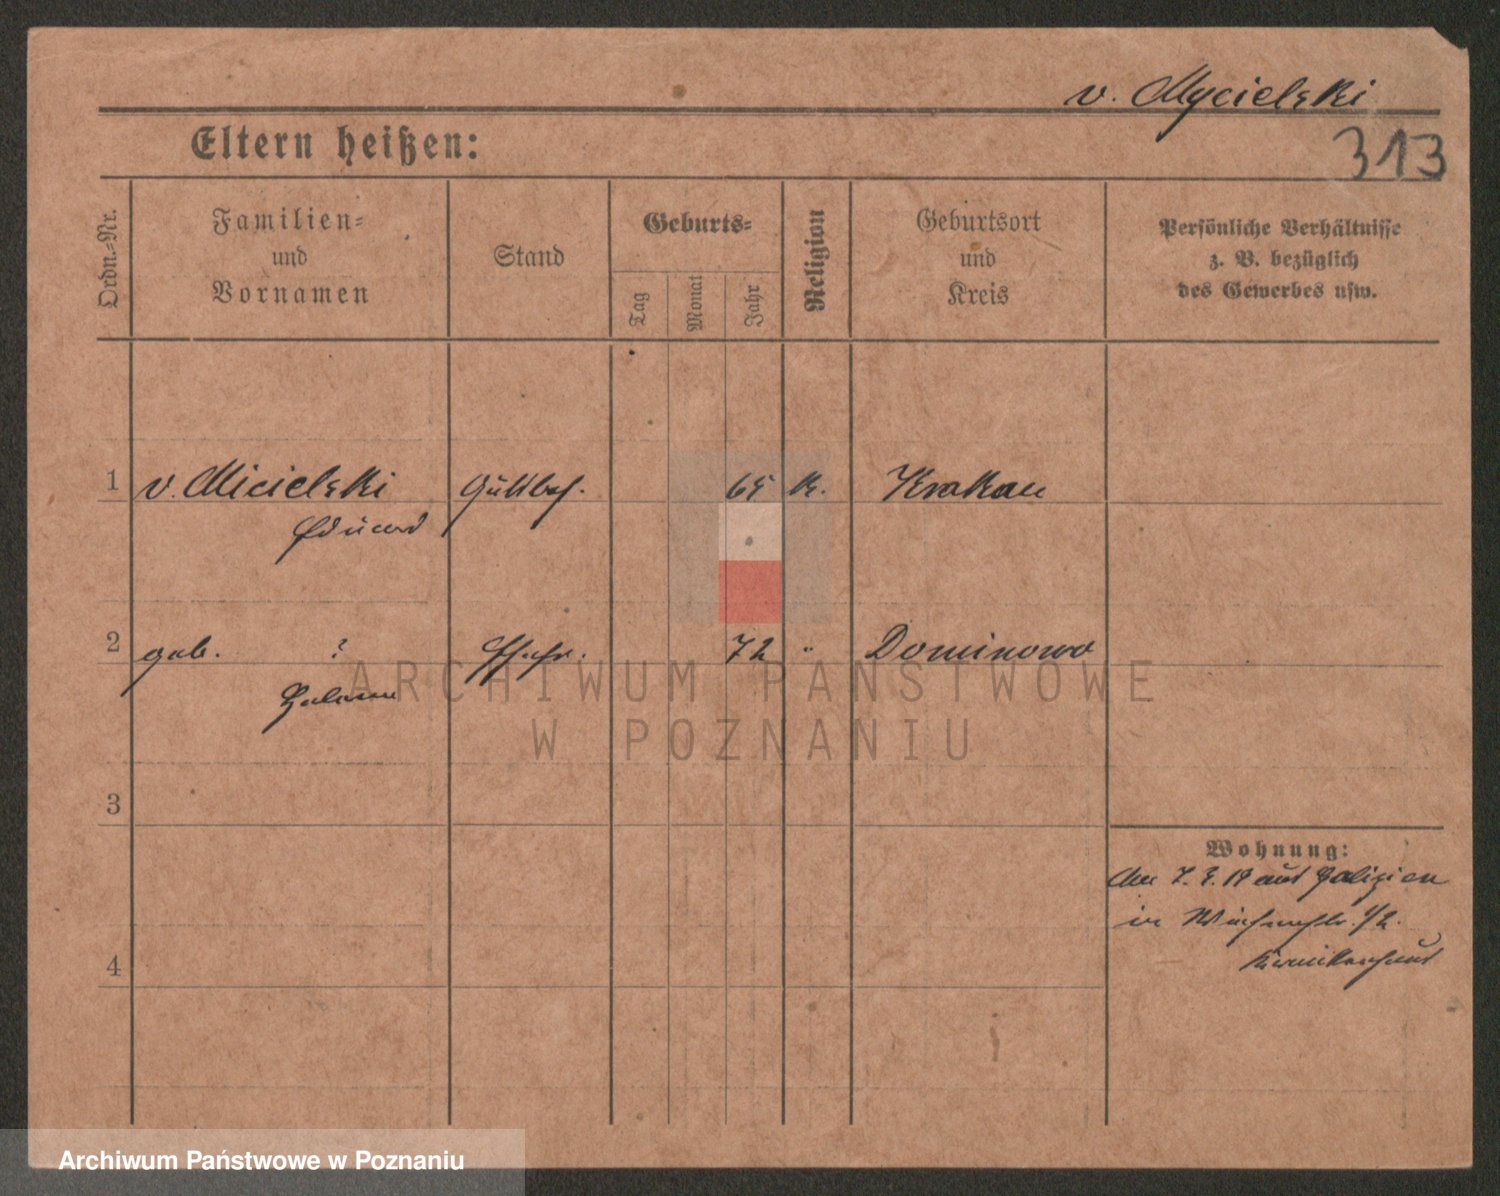 v. Mycielski
Eltern heißen:
313
Ordn.-Nr.
Familien-
und
Vornamen
Stand
Geburts-
Tag
Monat
Jahr
Religion
Geburtsort
und
Kreis
Persönliche Verhältnisse
z. B. bezüglich
des Gewerbes usw.
1 v. Micielski Gutsbes. 65 k. Krakau
Eduard
2 geb. ? Ehefr. 72 " Dominowo
3
Wohnung:
aus Galizien
in
4
ARCHIWUM PAŃSTWOWE
W POZNANIU
Archiwum Państwowe w Poznaniu